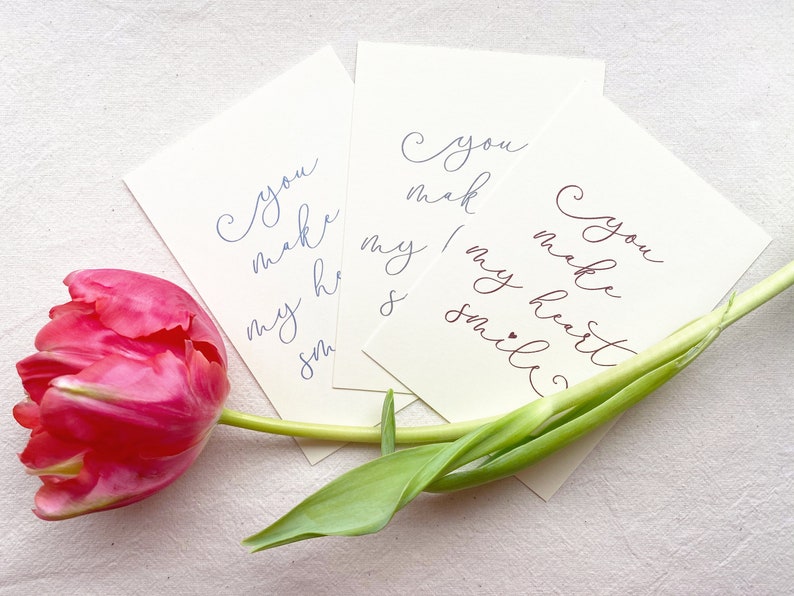 you
make
my he
sm
you
mak
my
s
you
make
my heart
smile